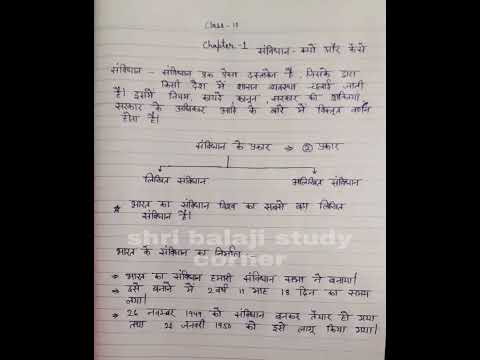 Class - 11
Chapter - 1
संविधान - क्यों और कैसे
संविधान - संविधान एक ऐसा दस्तावेज है, जिसके द्वारा
किसी देश में शासन व्यवस्था चलाई जाती
है। इसमें नियम, कायदे कानून, सरकार की शक्तियां,
सरकार के अधिकार आदि के बारे में विस्तृत वर्णन
होता है।
संविधान के प्रकार ⇒ ② प्रकार
लिखित संविधान
अलिखित संविधान
* भारत का संविधान विश्व का सबसे बड़ा लिखित
संविधान है।
shri balaji study
corner
भारत के संविधान का निर्माण
→ भारत का संविधान हमारी संविधान सभा ने बनाया।
→ इसे बनाने में 2 वर्ष 11 माह 18 दिन का समय
लगा।
→ 26 नवम्बर 1949 को संविधान बनकर तैयार हो गया
तथा 26 जनवरी 1950 को इसे लागू किया गया।